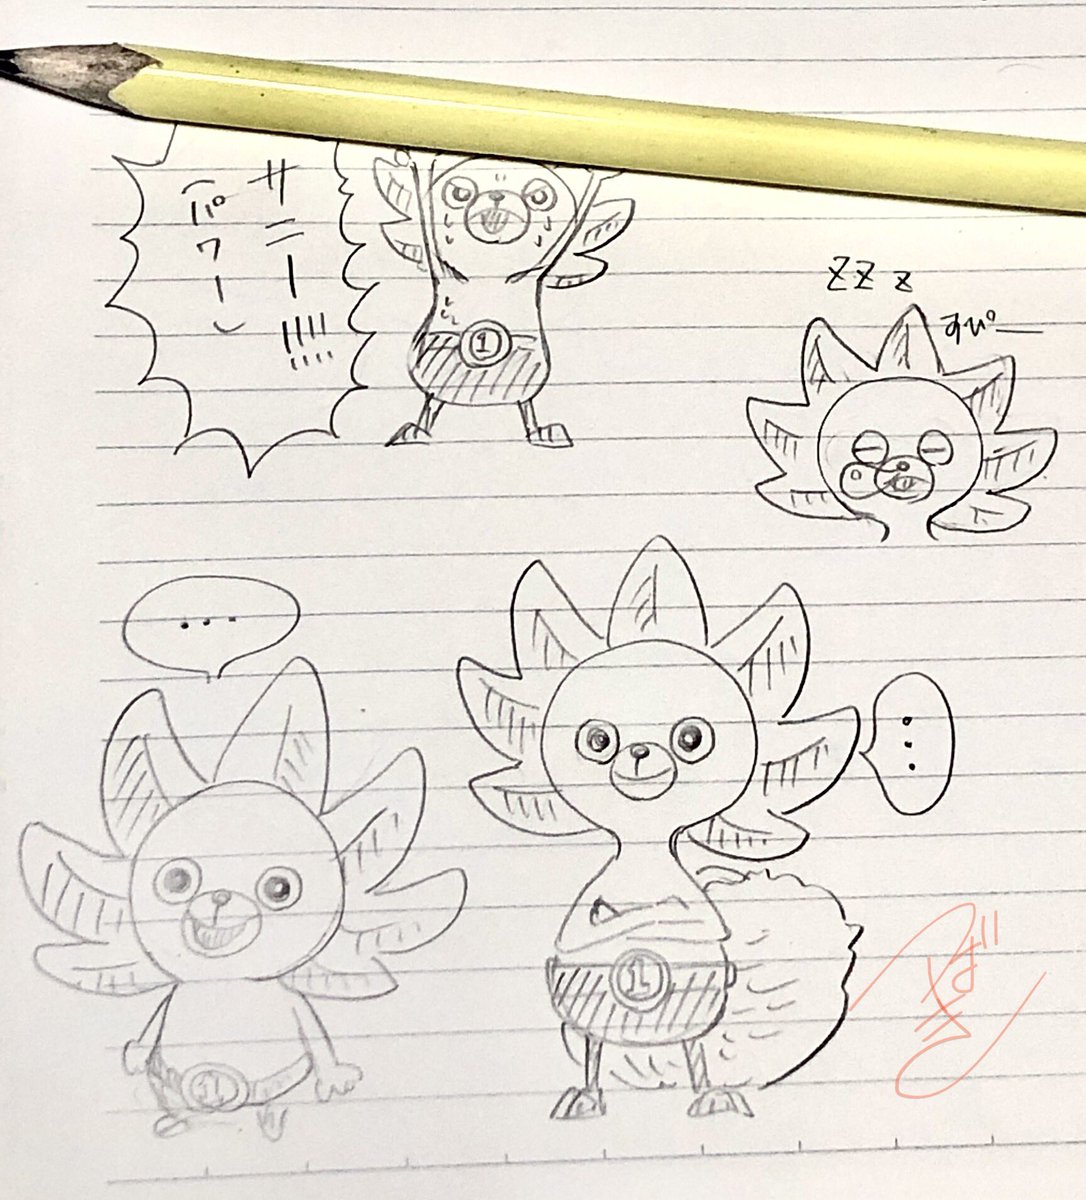 サニー!!!!
(パワー)
ZZz
すぴー
...
...
1
1
1